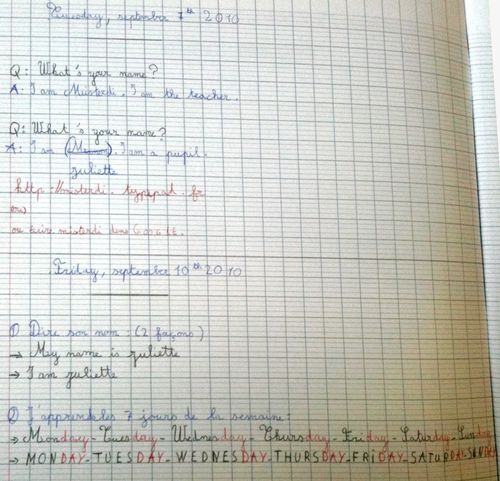 Tuesday, september 7th 2010
Q: What's your name?
A: I am Misterdi. I am the teacher.
Q: What's your name?
A: I am. I am a pupil.
juliette
http://misterdi.typepad.fr
ou
ou taire misterdi dans Google.
Friday, september 10th 2010
① Dire son nom: (2 façons)
→ My name is juliette
→ I am juliette
② J'apprends les 7 jours de la semaine:
→ Monday-Tuesday-Wednesday-Thursday-Friday-Saturday-Sunday
→ MONDAY-TUESDAY-WEDNESDAY-THURSDAY-FRIDAY-SATURDAY-SUNDAY